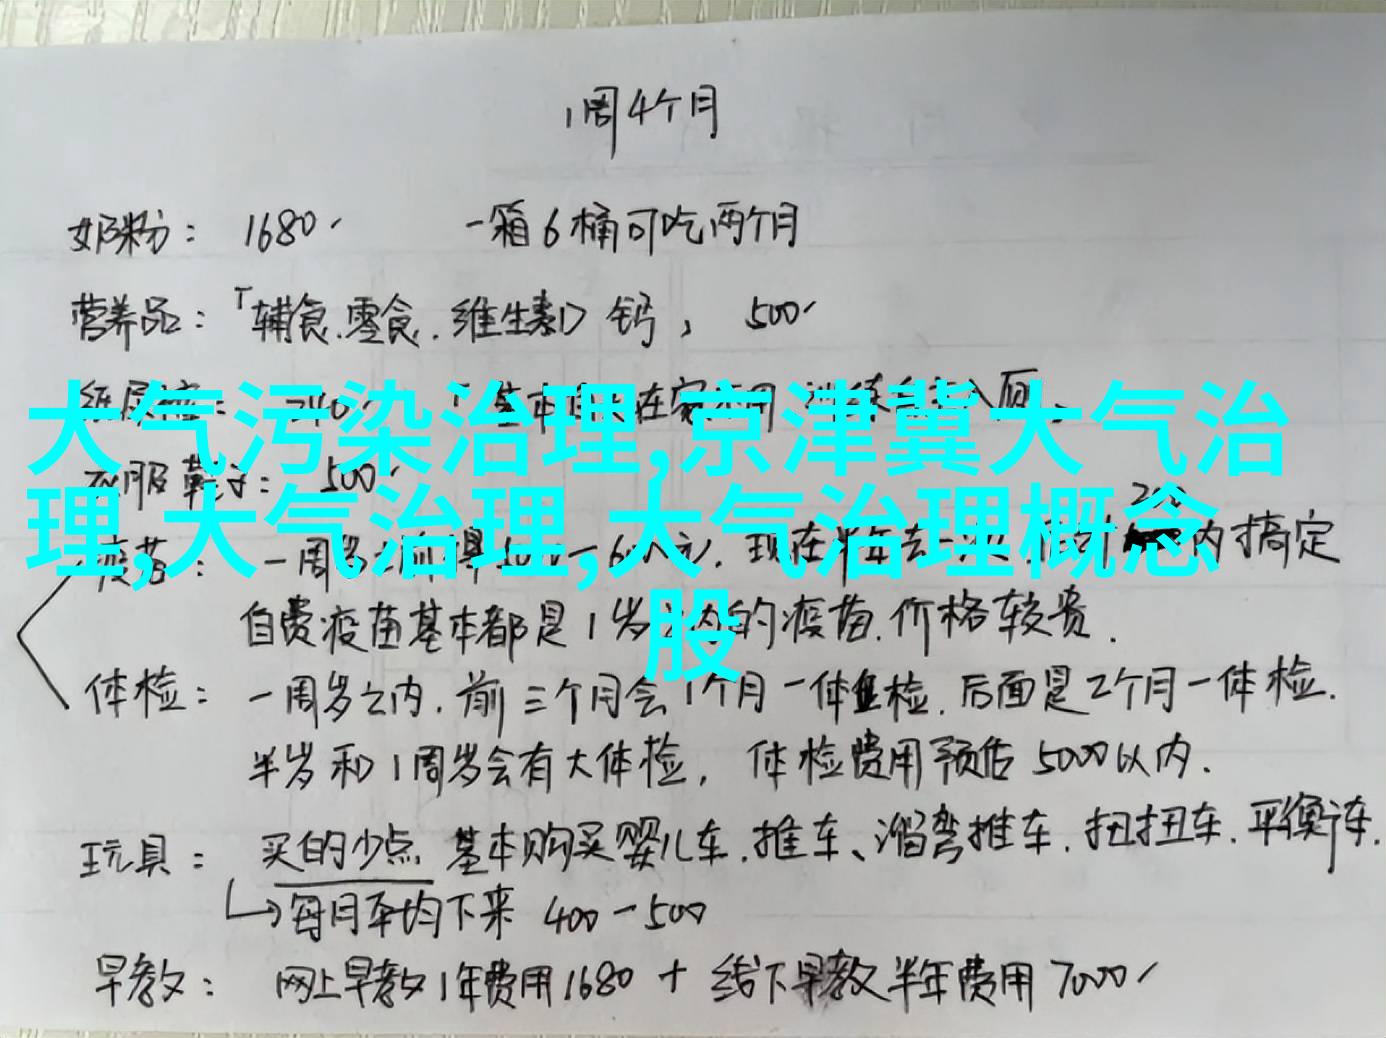 1周4个月
奶粉： 1680 一箱6桶可吃两个月
营养品：「辅食.零食.维生素D 钙， 500
大气污染治理,京津冀大气治
衣服鞋子： 500
理,大气治理,大气治理概念
疫苗： 一周岁 现在半年去一 内搞定
股
自费疫苗基本都是1岁之内的疫苗.价格较贵.
体检： 一周岁之内.前三个月会1个月一体检.后面是2个月一体检.
半岁和1周岁会有大体检， 体检费用预估5000以内.
玩具： 买的少点 基本购买婴儿车.推车、溜弯推车.扭扭车.平衡车.
每月平均下来 400-500
早教： 网上早教1年费用1680 + 线下早教半年费用7000